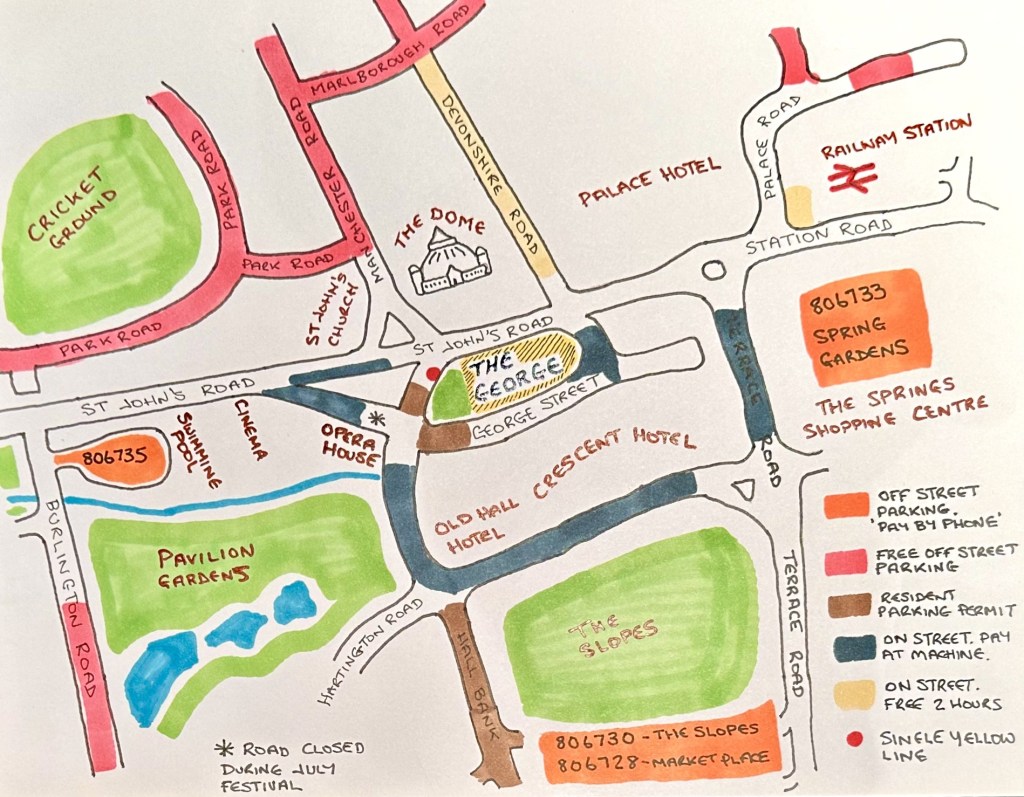 MARLBOROUGH ROAD
DEVONSHIRE ROAD
MANCHESTER ROAD
PARK ROAD
PARK ROAD
PARK ROAD
CRICKET
GROUND
THE DOME
PALACE HOTEL
PALACE ROAD
RAILWAY STATION
STATION ROAD
ST JOHN'S
CHURCH
ST JOHN'S ROAD
ST JOHN'S ROAD
THE
GEORGE
GEORGE STREET
806733
SPRING
GARDENS
THE SPRINGS
SHOPPINE CENTRE
TERRACE ROAD
806735
SWIMMINE
POOL
CINEMA
OPERA
HOUSE
*
CRESCENT HOTEL
OLD HALL
HOTEL
BURLINGTON ROAD
PAVILION
GARDENS
HARTINGTON ROAD
HALL BANK
THE
SLOPES
TERRACE ROAD
806730 - THE SLOPES
806728 - MARKET PLACE
* ROAD CLOSED
DURING JULY
FESTIVAL
OFF STREET
PARKING.
'PAY BY PHONE'
FREE OFF STREET
PARKING
RESIDENT
PARKING PERMIT
ON STREET. PAY
AT MACHINE.
ON STREET.
FREE 2 HOURS
SINGLE YELLOW
LINE